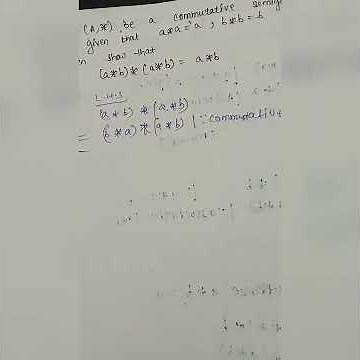 (A,*) be a commutative semig
given that a*a=a, b*b=b
show that
(a*b)*(a*b) = a*b
L.H.S
(a*b) *(a*b)
= (b*a)*(a*b) | ∵ commutative
=